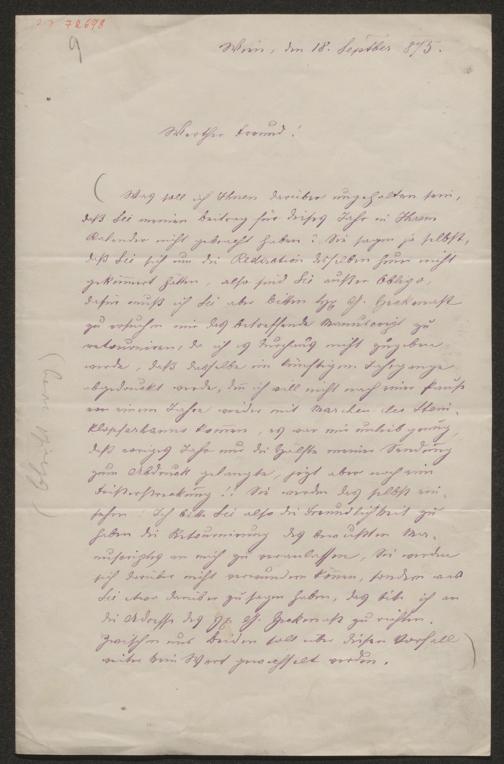 72698
9
Wien, den 18. Septber 875.
Werther Freund!
( Was soll ich Ihnen darüber ungehalten sein,
daß Sie meinen Beitrag für dieses Jahr in Ihrem
Kalender nicht gebracht haben? Sie sagen ja selbst,
daß Sie sich um die Redaction desselben heuer nicht
gekümmert hätten, also sind Sie außer Obligo,
dafür muß ich Sie aber bitten
zu ersuchen mir das betreffende Manuscript zu
retourniren, da ich es durchaus nicht zugeben
werde, daß dasselbe im künftigen Jahrgange
abgedruckt werde, denn ich will nicht nach einer Pause
von einem Jahre wieder mit
kommen, es war mir unlieb genug,
daß voriges Jahr nur die Hälfte meiner Sendung
zum Abdruck gelangte, jetzt aber noch eine
!! Sie werden das selbst ein-
sehen! Ich bitte Sie also die Freundlichkeit zu
haben die Retournirung des bewußten Ma-
nuscriptes an mich zu veranlassen, Sie werden
sich darüber nicht verwundern können, sondern was
Sie etwa darüber zu sagen haben, das bitte ich an
die Adresse des zu richten.
Zwischen uns beiden soll über diesen Vorfall )
weiter kein Wort gewechselt werden.